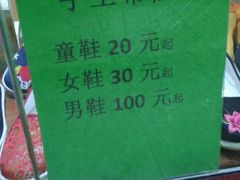 童鞋 20 元起
女鞋 30 元起
男鞋 100 元起